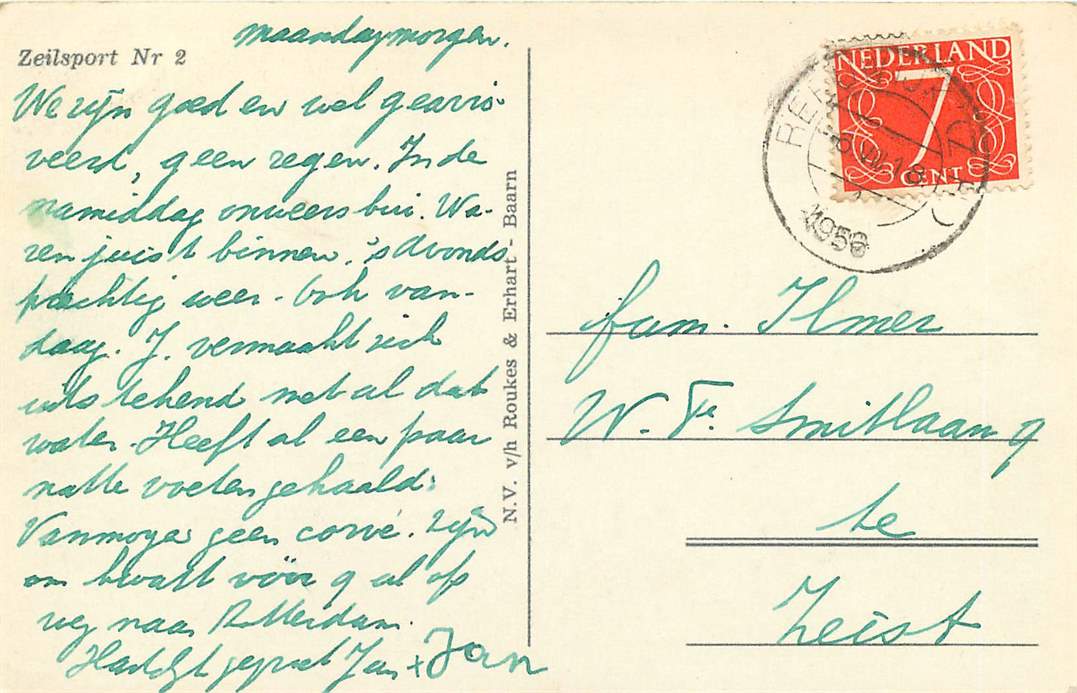 maandagmorgen.
Zeilsport Nr 2
We zijn goed en wel gearri-
veerd, geen regen. In de
namiddag onweersbui. Wa-
ren juist binnen, 's Avonds
prachtig weer. Ook van-
daag. J. vermaakt zich
uitstekend met al dat
water. Heeft al een paar
natte voeten gehaald.
Vanmorgen geen corvé. Zijn
om kwart vóór 9 al op
weg naar Rotterdam.
Hartelijk gegroet Jan + Jan
N.V. v/h Roukes & Erhart - Baarn
NEDERLAND
7
CENT
1956
fam. Ilmer
W. Fr. Smitlaan 9
te
Zeist